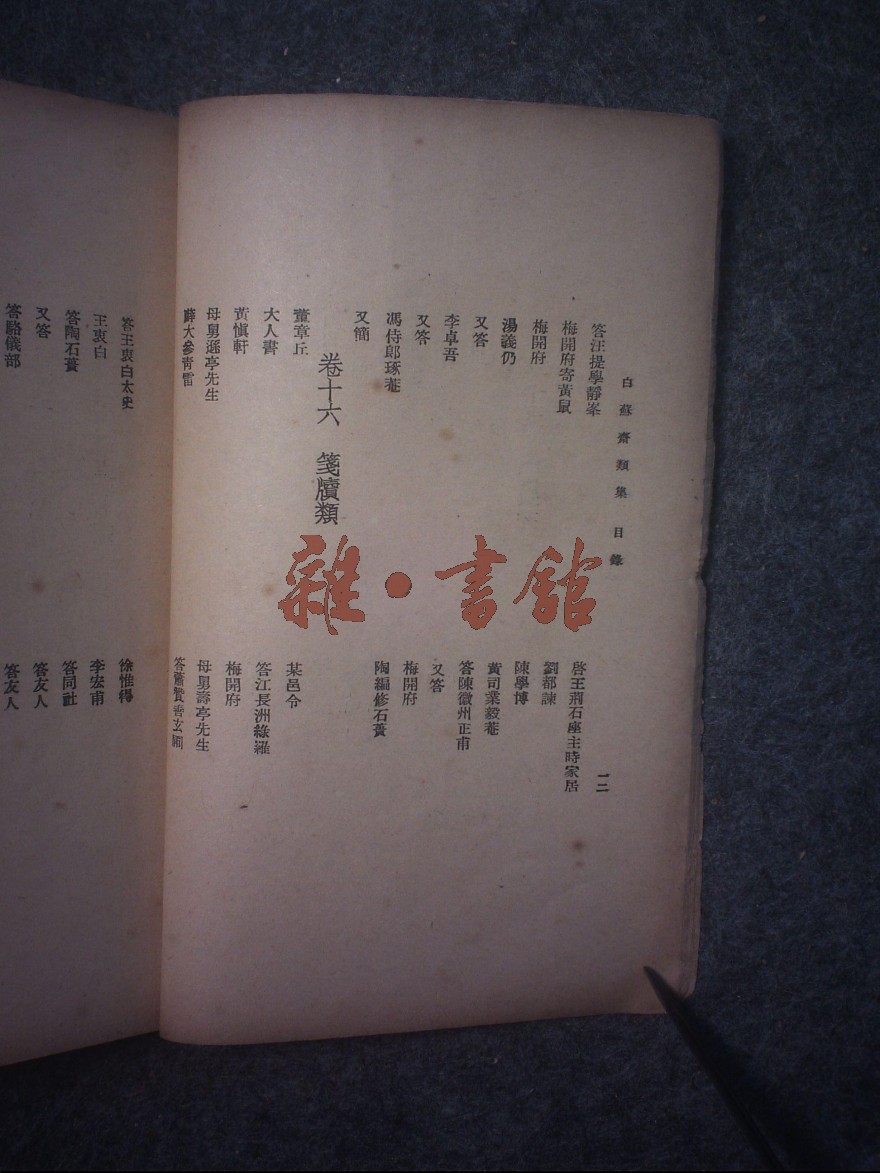 白蘇齋類集 目錄
一二
答汪提學靜峯
啓王荆石座主時家居
梅開府寄黃鼠
劉都諫
梅開府
陳學博
湯義仍
黃司業毅菴
又答
答陳徽州正甫
李卓吾
又答
又答
梅開府
馮侍郎琢菴
陶編修石蕢
又簡
卷十六 箋牘類
董章丘
某邑令
大人書
答江長洲綠蘿
黃愼軒
梅開府
母舅遜亭先生
母舅壽亭先生
薛大參靑雷
答蕭贊善玄圃
答王衷白太史
徐惟得
王衷白
李宏甫
答陶石蕢
答同社
又答
答友人
答駱儀部
答友人
雜·書館